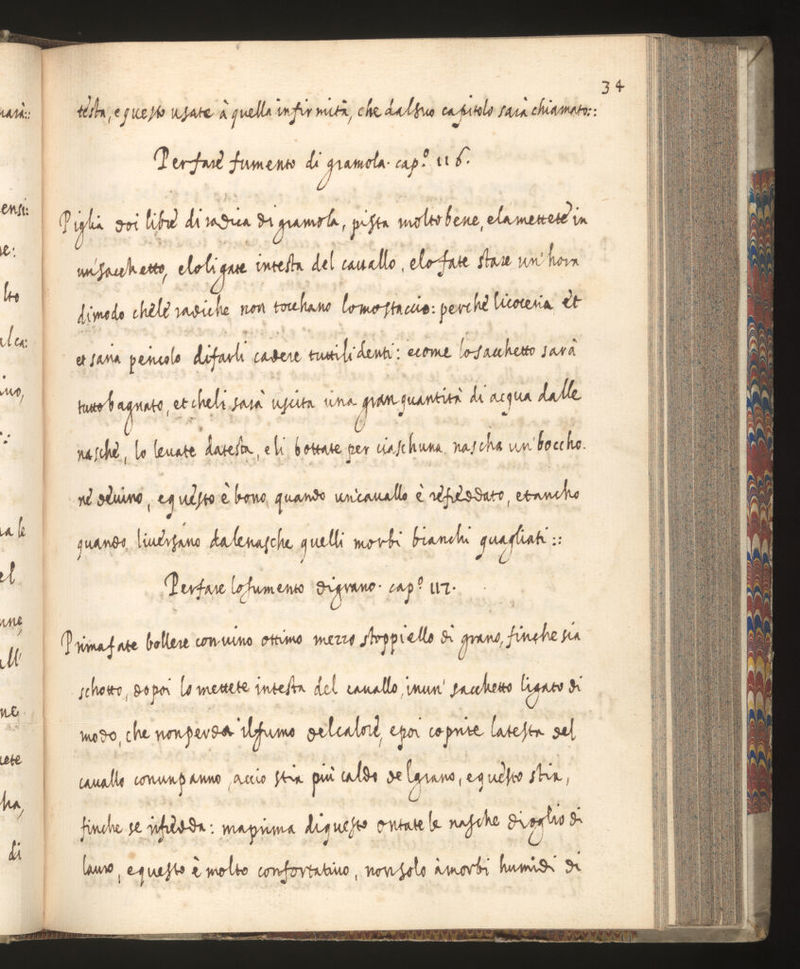 34
testa, e questo usate à quella infirmità, che dal suo capitolo sarà chiamato::
Per fare fumento di gramola. cap.º 116.
Piglia doi libre di radica di gramola, pista molto bene, e la mettete in
un' sacchetto, e lo ligate in testa del cavallo, e lo fate stare un' hora
di modo che le radiche non tocchano lo mostaccio: perche li coceria et
et saria pericolo di farli cadere tutti li denti: e come lo sacchetto sarà
tutto bagnato, et che li sarà uscita una gran quantità di acqua dalle
nasche, lo levate da testa, e li bottate per ciaschuna nascha un' boccho.
ne de vino, e questo è bono quando un cavallo è refreddato, et ancho
quando li versano da le nasche quelli morbi bianchi quagliati ::
Per fare lo fumento di grano. cap.º 117.
Prima fate bollere con vino ottimo mezzo stoppiello di grano, finche sia
schotto, dopoi lo mettete in testa del cavallo, in un' sacchetto ligato di
modo, che non perda il fumo del calore, e poi coprite la testa del
cavallo con un panno, accio stia più caldo de lgrano, e questo stia,
finche se rifredda: ma prima di questo ontate le nasche di oglio di
lauro, e questo è molto confortativo, non solo à morbi humidi di
narà::
ensi:
re:
lto
alca:
ivo,
ra le
el
une
all'
ne
uete
ha,
di